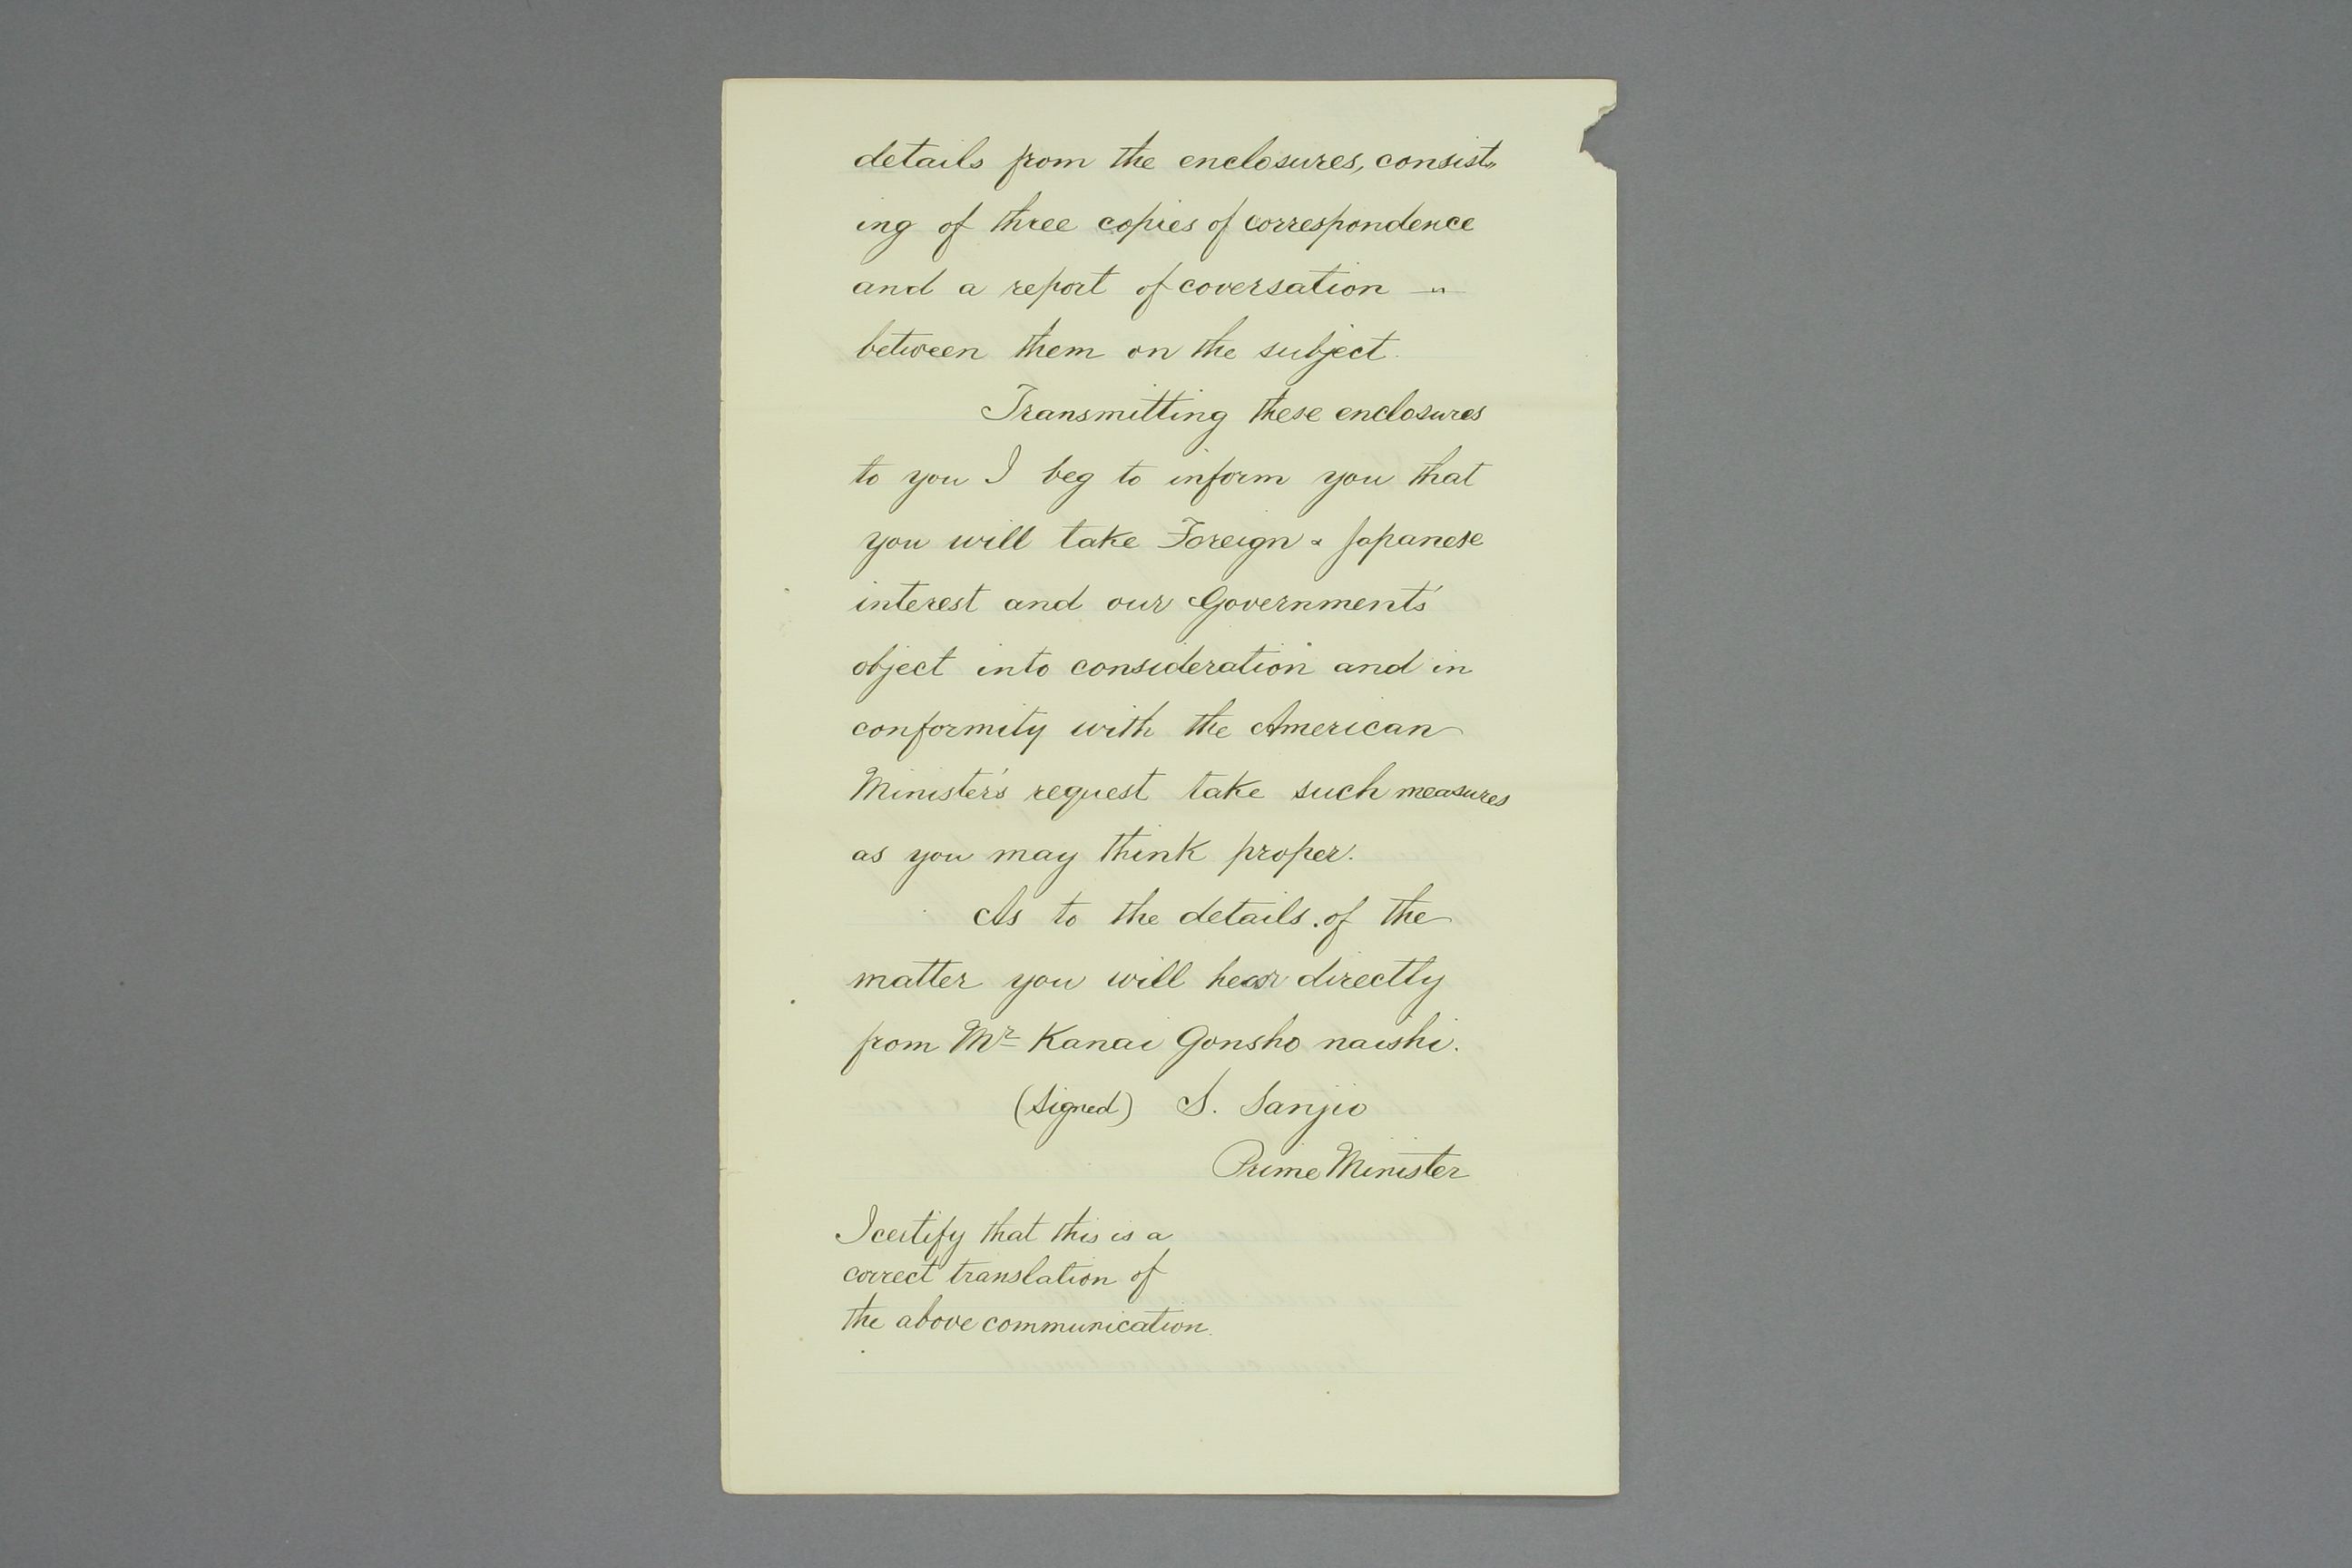 details from the enclosures, consist„
ing of three copies of correspondence
and a report of coversation — „
between them on the subject.
Transmitting these enclosures
to you I beg to inform you that
you will take Foreign & Japanese
interest and our Governments'
object into consideration and in
conformity with the American
Minister's request take such measures
as you may think proper.
As to the details of the
matter you will hear directly
from Mr Kanai Gonsho naishi.
(Signed) S. Sanjio
Prime Minister
I certify that this is a
correct translation of
the above communication.